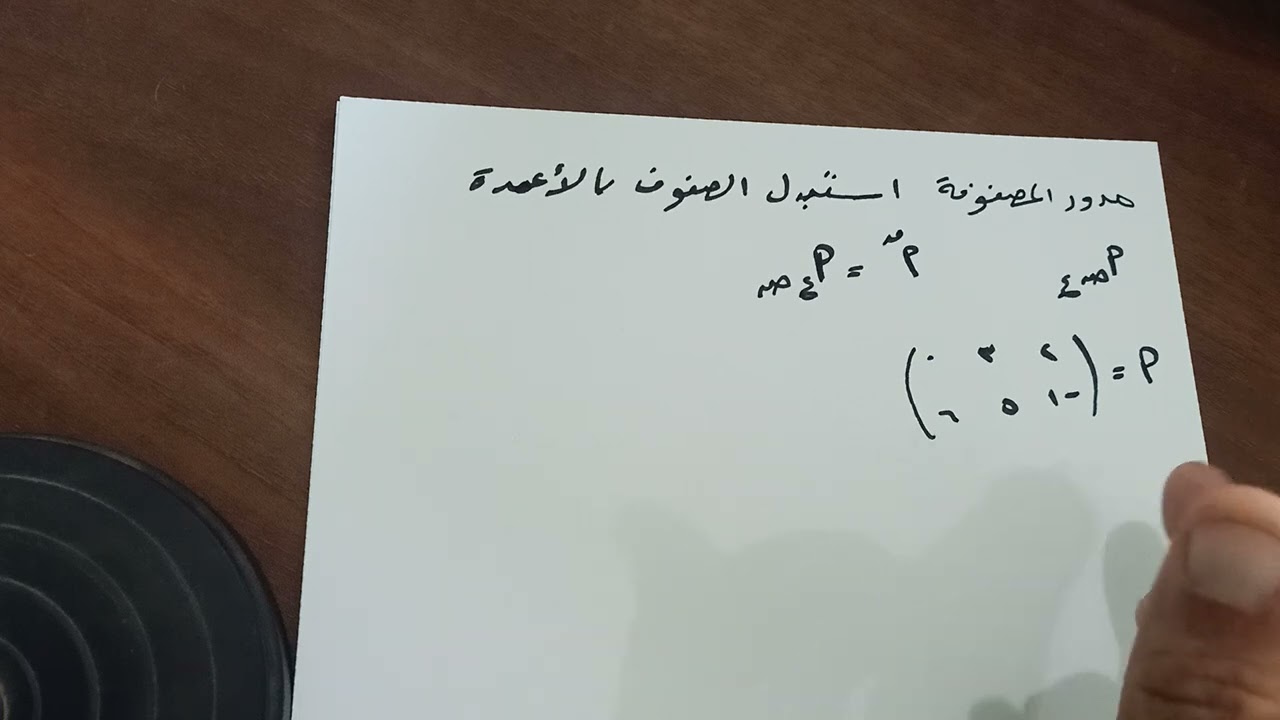 مدور المصفوفة استبدل الصفوف بالأعمدة
أ ص ع أ ᵐᵈ = أ ع ص
أ = ( ٢ ٣ ٠
-١ ٥ ٦ )